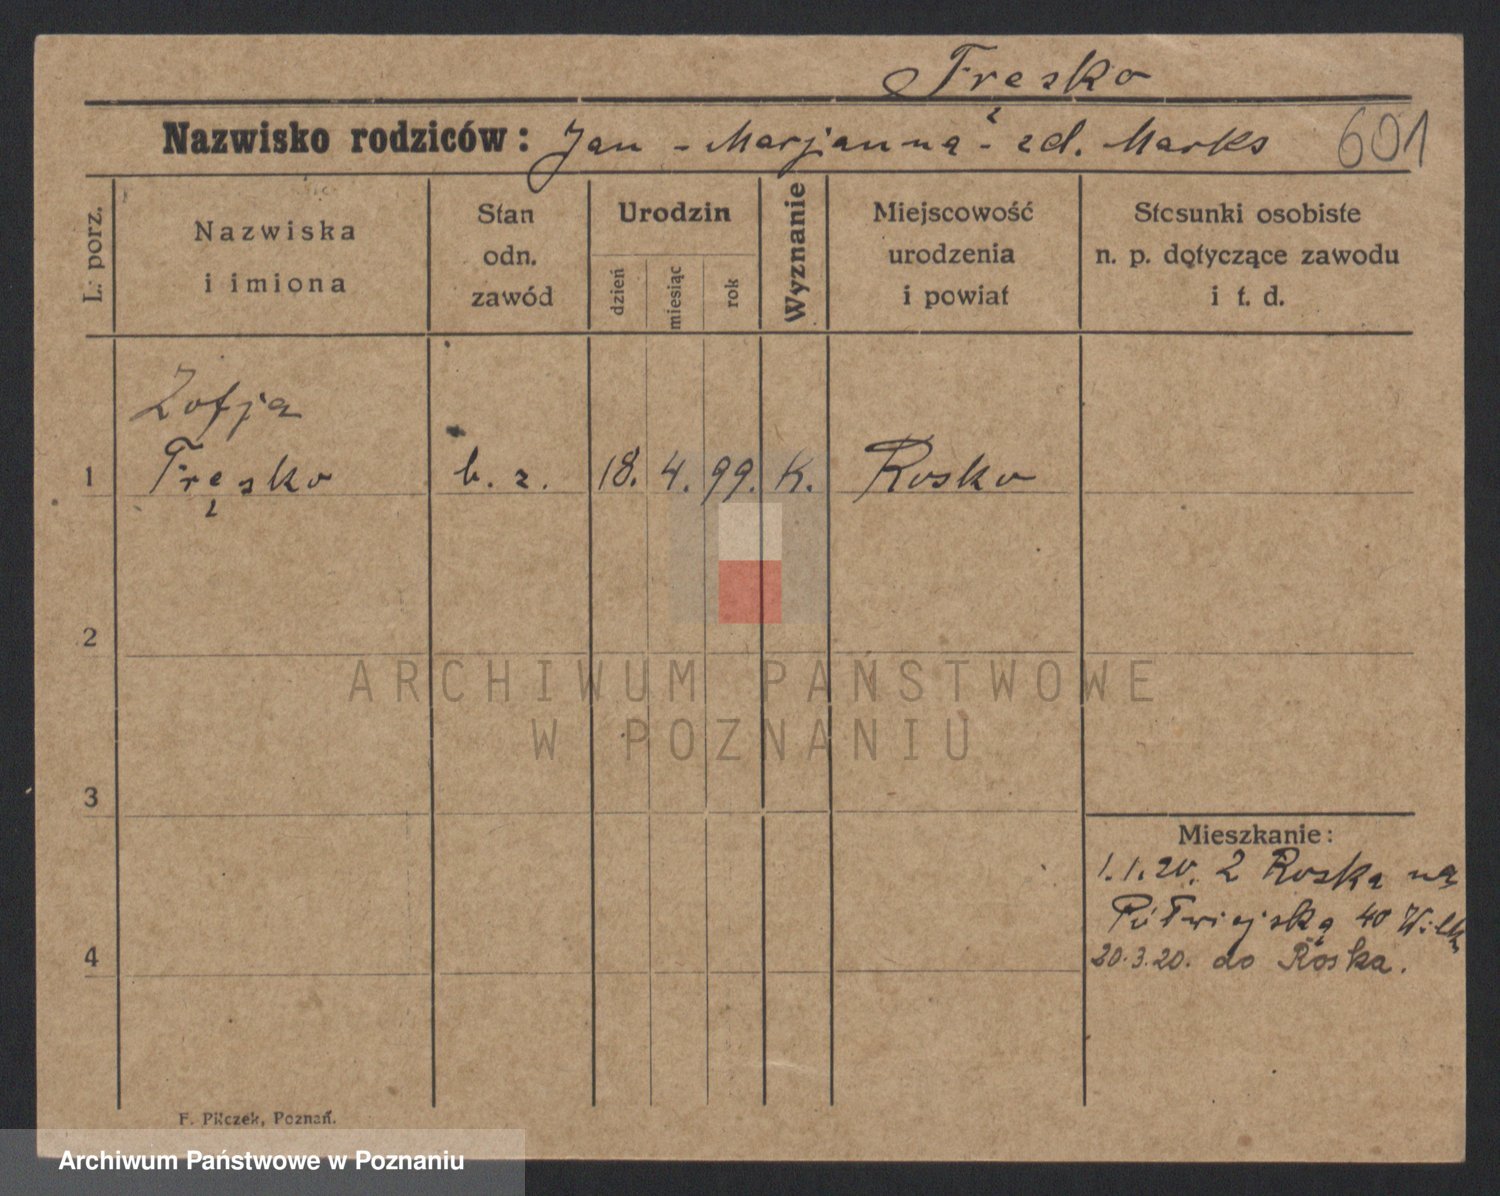 Fresko
Nazwisko rodziców: Jan - Marjanna - zd. Marks 601
L. porz.
Nazwiska
i imiona
Stan
odn.
zawód
Urodzin
dzień
miesiąc
rok
Wyznanie
Miejscowość
urodzenia
i powiat
Stosunki osobiste
n. p. dotyczące zawodu
i t. d.
Zofja
1 Fręsko b. z. 18. 4. 99. K. Rosko
2
ARCHIWUM PAŃSTWOWE
W POZNANIU
3
Mieszkanie:
1.1.20. z Roska na
Półwiejską 40 Wilk
4 20.3.20. do Roska.
F. Pilczek, Poznań.
Archiwum Państwowe w Poznaniu